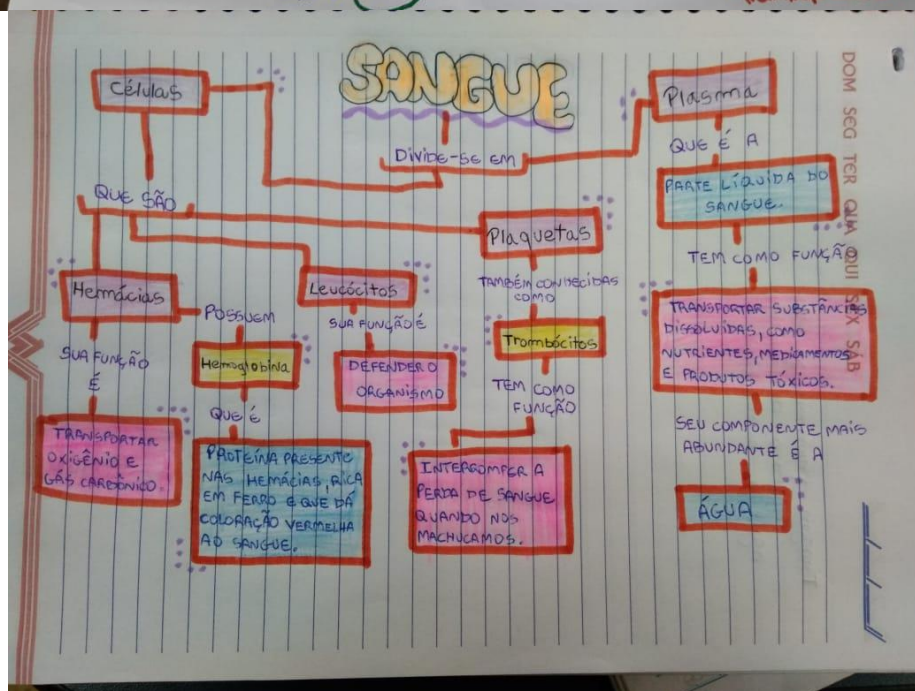 SANGUE
DIVIDE-SE EM
Células
QUE SÃO
Hemácias
SUA FUNÇÃO
É
TRANSPORTAR
OXIGÊNIO E
GÁS CARBÔNICO.
POSSUEM
Hemoglobina
QUE É
PROTEÍNA PRESENTE
NAS HEMÁCIAS, RICA
EM FERRO E QUE DÁ
COLORAÇÃO VERMELHA
AO SANGUE.
Leucócitos
SUA FUNÇÃO É
DEFENDER O
ORGANISMO
Plaquetas
TAMBÉM CONHECIDAS
COMO
Trombócitos
TEM COMO
FUNÇÃO
INTERROMPER A
PERDA DE SANGUE
QUANDO NOS
MACHUCAMOS.
Plasma
QUE É A
PARTE LÍQUIDA DO
SANGUE.
TEM COMO FUNÇÃO
TRANSPORTAR SUBSTÂNCIAS
DISSOLVIDAS, COMO
NUTRIENTES, MEDICAMENTOS
E PRODUTOS TÓXICOS.
SEU COMPONENTE MAIS
ABUNDANTE É A
ÁGUA
DOM SEG TER QUA QUI SEX SÁB